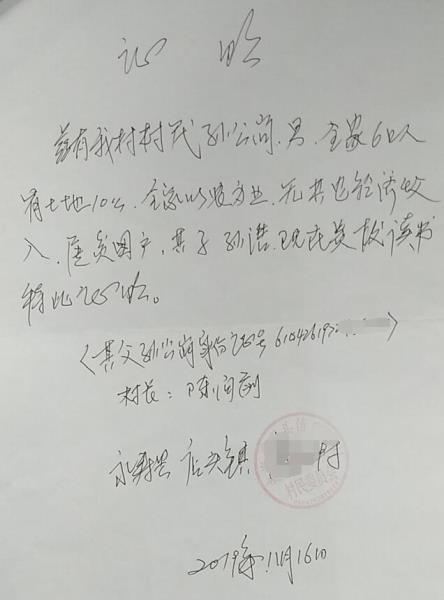 证 明
兹有我村村民孙公前,男,全家6口人
有土地10亩,全家以农为业,无其也经济收
入,属贫困户,其子孙浩,现在贵校读书
特此证明。
(其父孙公前身份证号 61042619
村长:陈
永寿县 店头镇 村
村民委员会
2019年11月16日